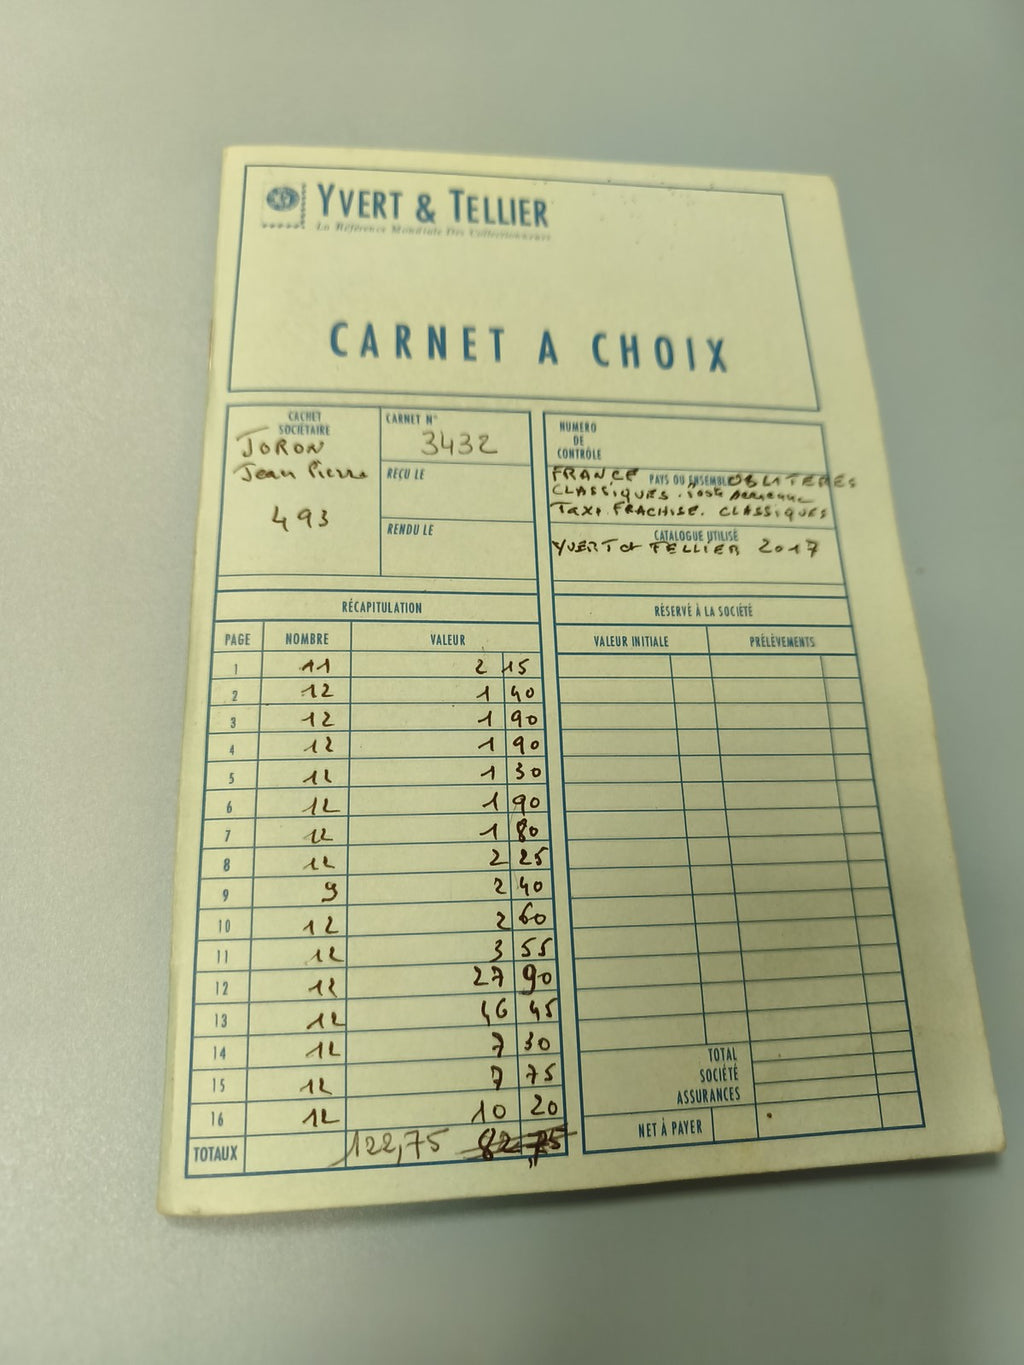 YVERT & TELLIER
La Référence Mondiale Des Collectionneurs
CARNET A CHOIX
CACHET
SOCIÉTAIRE
JORON
Jean Pierre
493
CARNET N°
3432
REÇU LE
RENDU LE
NUMERO
DE
CONTRÔLE
PAYS OU ENSEMBLE
FRANCE OBLITERES
CLASSIQUES. Poste Aerienne
TAXE FRACHISE. CLASSIQUES
CATALOGUE UTILISÉ
YVERT et TELLIER 2017
RÉCAPITULATION
PAGE NOMBRE VALEUR
1 11 2 15
2 12 1 40
3 12 1 90
4 12 1 90
5 12 1 30
6 12 1 90
7 12 1 80
8 12 2 25
9 9 2 40
10 12 2 60
11 12 3 55
12 12 27 90
13 12 46 45
14 12 7 30
15 12 7 75
16 12 10 20
TOTAUX 122,75 82,75
RÉSERVÉ À LA SOCIÉTÉ
VALEUR INITIALE PRÉLÈVEMENTS
TOTAL
SOCIÉTÉ
ASSURANCES
NET À PAYER